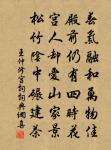 春氣融和萬物佳
殿前仍有四時花
宮人却愛山家景
松竹陰中碾建茶
王仲修宮詞